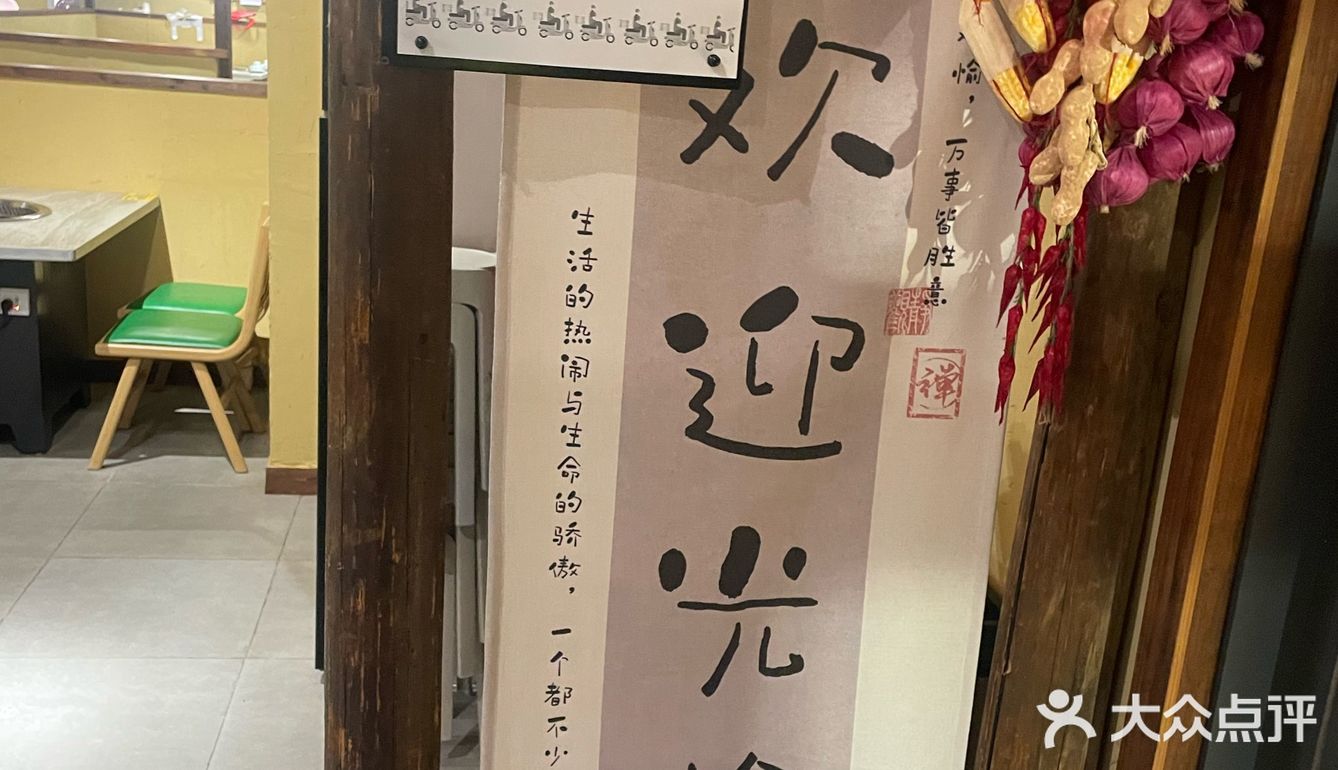 愉，万事皆胜意
欢迎光
生活的热闹与生命的骄傲，一个都不少
禅
大众点评